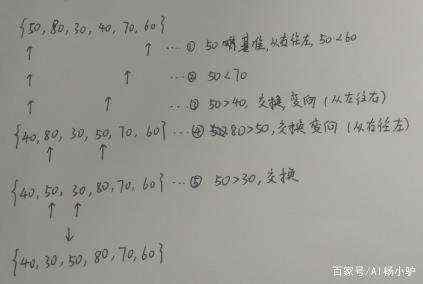 {50, 80, 30, 40, 70, 60}
↑ ↑ … ① 50 基准, 从右往左, 50<60
↑ ↑ ② 50<70
↑ ↑ ③ 50>40, 交换 变向 (从左往右)
{40, 80, 30, 50, 70, 60} … ④ 80>50, 交换 变向 (从右往左)
↑ ↑
{40, 50, 30, 80, 70, 60} … ⑤ 50>30, 交换
↑ ↑
↓
{40, 30, 50, 80, 70, 60}
百家号/AI杨小驴